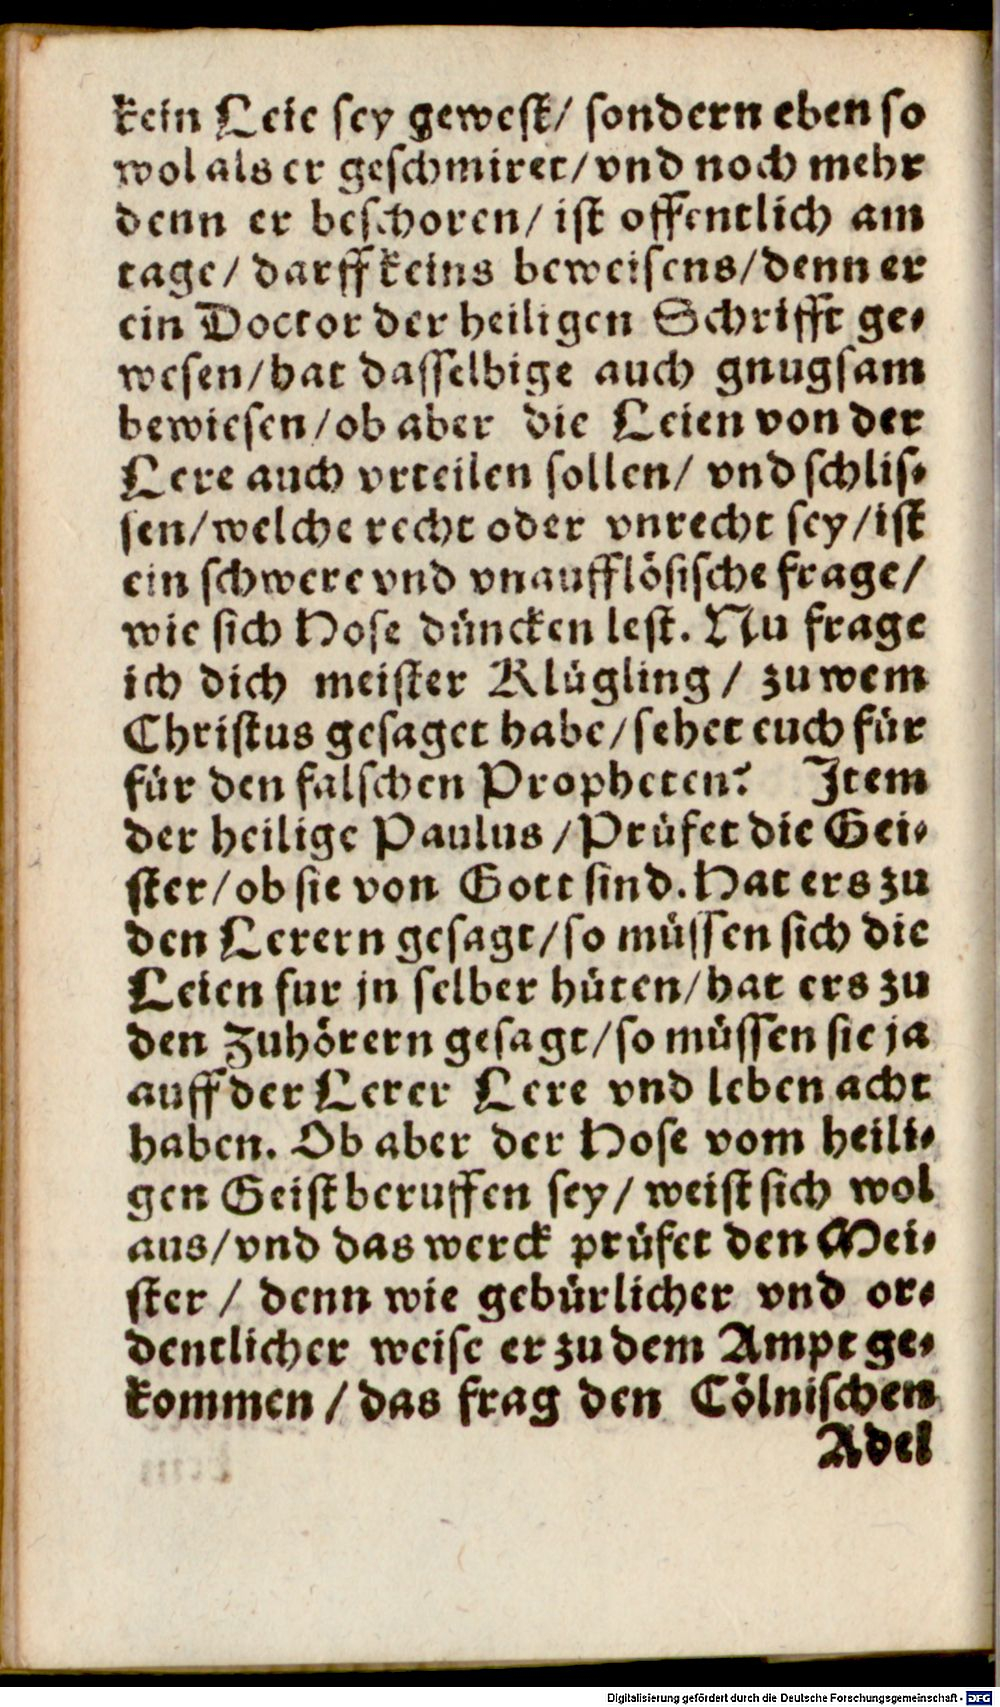 kein Leie sey gewest/ sondern eben so
wol als er geschmiret/ vnd noch mehr
denn er beschoren/ ist offentlich am
tage/ darff keins beweisens/ denn er
ein Doctor der heiligen Schrifft ge-
wesen/ hat dasselbige auch gnugsam
bewiesen/ ob aber die Leien von der
Lere auch vrteilen sollen/ vnd schlis-
sen/ welche recht oder vnrecht sey/ ist
ein schwere vnd vnaufflösische frage/
wie sich Hose düncken lest. Nu frage
ich dich meister Klügling/ zu wem
Christus gesaget habe/ sehet euch für
für den falschen Propheten? Item
der heilige Paulus/ Prüfet die Gei-
ster/ ob sie von Gott sind. Hat ers zu
den Lerern gesagt/ so müssen sich die
Leien fur jn selber hüten/ hat ers zu
den Zuhörern gesagt/ so müssen sie ja
auff der Lerer Lere vnd leben acht
haben. Ob aber der Hose vom heili-
gen Geist beruffen sey/ weist sich wol
aus/ vnd das werck prüfet den Mei-
ster/ denn wie gebürlicher vnd or-
dentlicher weise er zu dem Ampt ge-
kommen/ das frag den Cölnischen
Adel
Digitalisierung gefördert durch die Deutsche Forschungsgemeinschaft - DFG